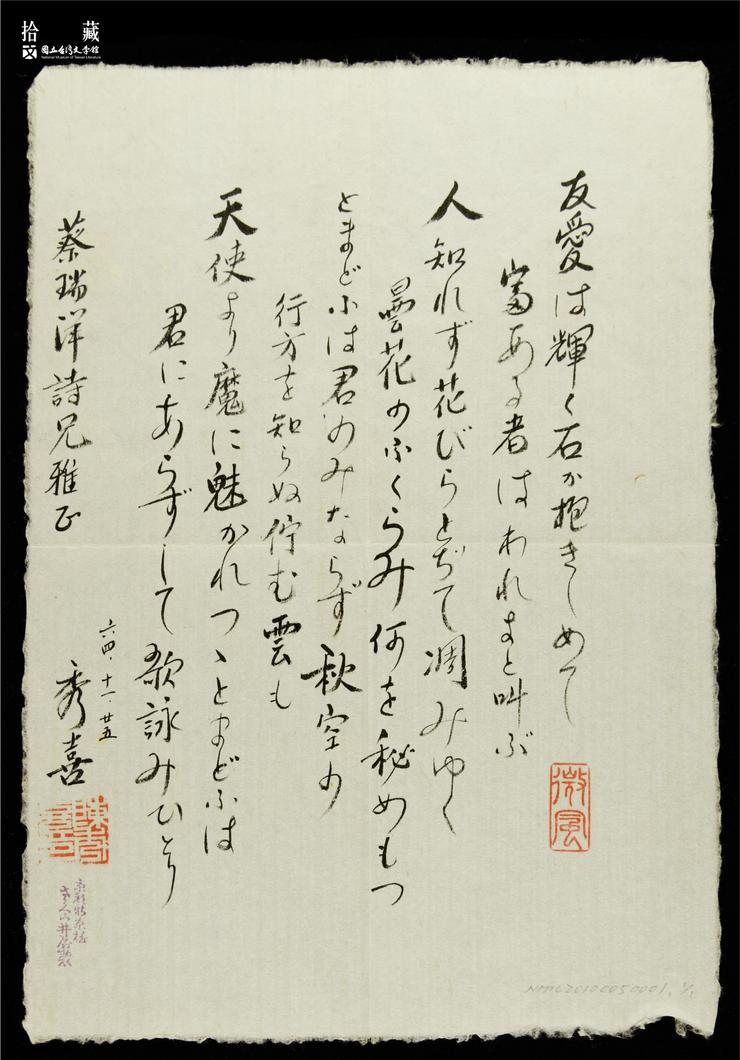 拾藏
國立台灣文學館
National Museum of Taiwan Literature
友愛は輝く石か抱きしめて
富ある者はわれまと叫ぶ
人知れず花びらとぢて凋みゆく
曇花のふくらみ何を秘めもつ
とまどふは君のみならず秋空の
行方を知らぬ佇む雲も
天使より魔に魅かれつゝとまどふは
君にあらずして歌詠みひとり
蔡瑞洋詩兄雅正
六四・十一・廿五
秀喜
微風
陳秀喜
NMTL20100050001, 1/1